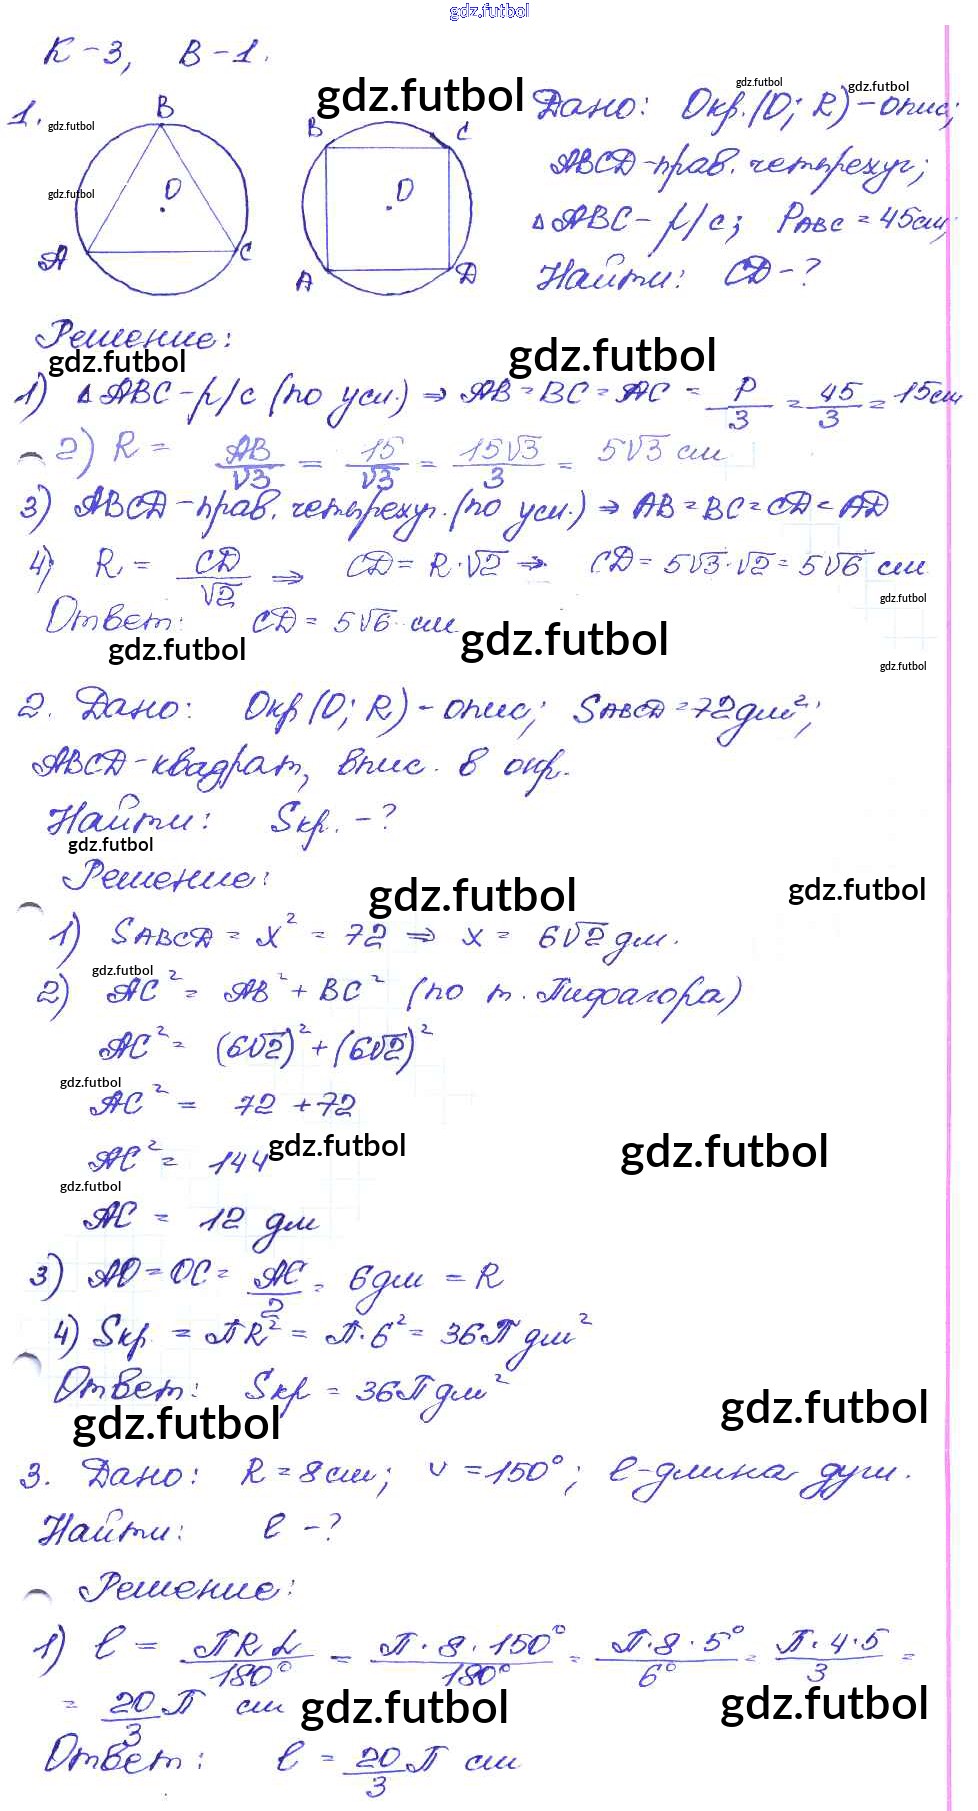 gdz.futbol
К-3, В-1.
gdz.futbol
gdz.futbol
gdz.futbol
1.
gdz.futbol
B
B
C
Дано: Окр.(O; R)-опис;
gdz.futbol
O
O
ABCD-прав. четырехуг;
A
C
A
D
△ABC - р/с; P_ABC = 45см;
Найти: CD-?
Решение:
gdz.futbol
gdz.futbol
1) △ABC-р/с (по усл.) ⇒ AB=BC=AC = P/3 = 45/3 = 15см
2) R = AB/√3 = 15/√3 = 15√3/3 = 5√3 см
3) ABCD-прав. четырехуг. (по усл.) ⇒ AB=BC=CD=AD
4) R = CD/√2 ⇒ CD = R·√2 ⇒ CD = 5√3·√2 = 5√6 см
gdz.futbol
Ответ: CD = 5√6 см
gdz.futbol
gdz.futbol
gdz.futbol
2. Дано: Окр(O; R)-опис; S_ABCD=72дм²;
ABCD-квадрат, впис. в окр.
Найти: Sкр. -?
gdz.futbol
Решение:
gdz.futbol
gdz.futbol
1) S_ABCD = x² = 72 ⇒ x = 6√2 дм.
gdz.futbol
2) AC² = AB² + BC² (по т. Пифагора)
AC² = (6√2)² + (6√2)²
gdz.futbol
AC² = 72 + 72
AC² = 144
gdz.futbol
gdz.futbol
gdz.futbol
AC = 12 дм
3) AO=OC= AC/2 = 6дм = R
4) Sкр = πR² = π·6² = 36π дм²
Ответ: Sкр = 36π дм²
gdz.futbol
gdz.futbol
3. Дано: R=8см; ∪=150°; ℓ-длина дуги.
Найти: ℓ -?
Решение:
1) ℓ = πRα/180° = π·8·150°/180° = π·8·5°/6° = π·4·5/3 =
= 20/3 π см
gdz.futbol
gdz.futbol
Ответ: ℓ = 20/3 π см